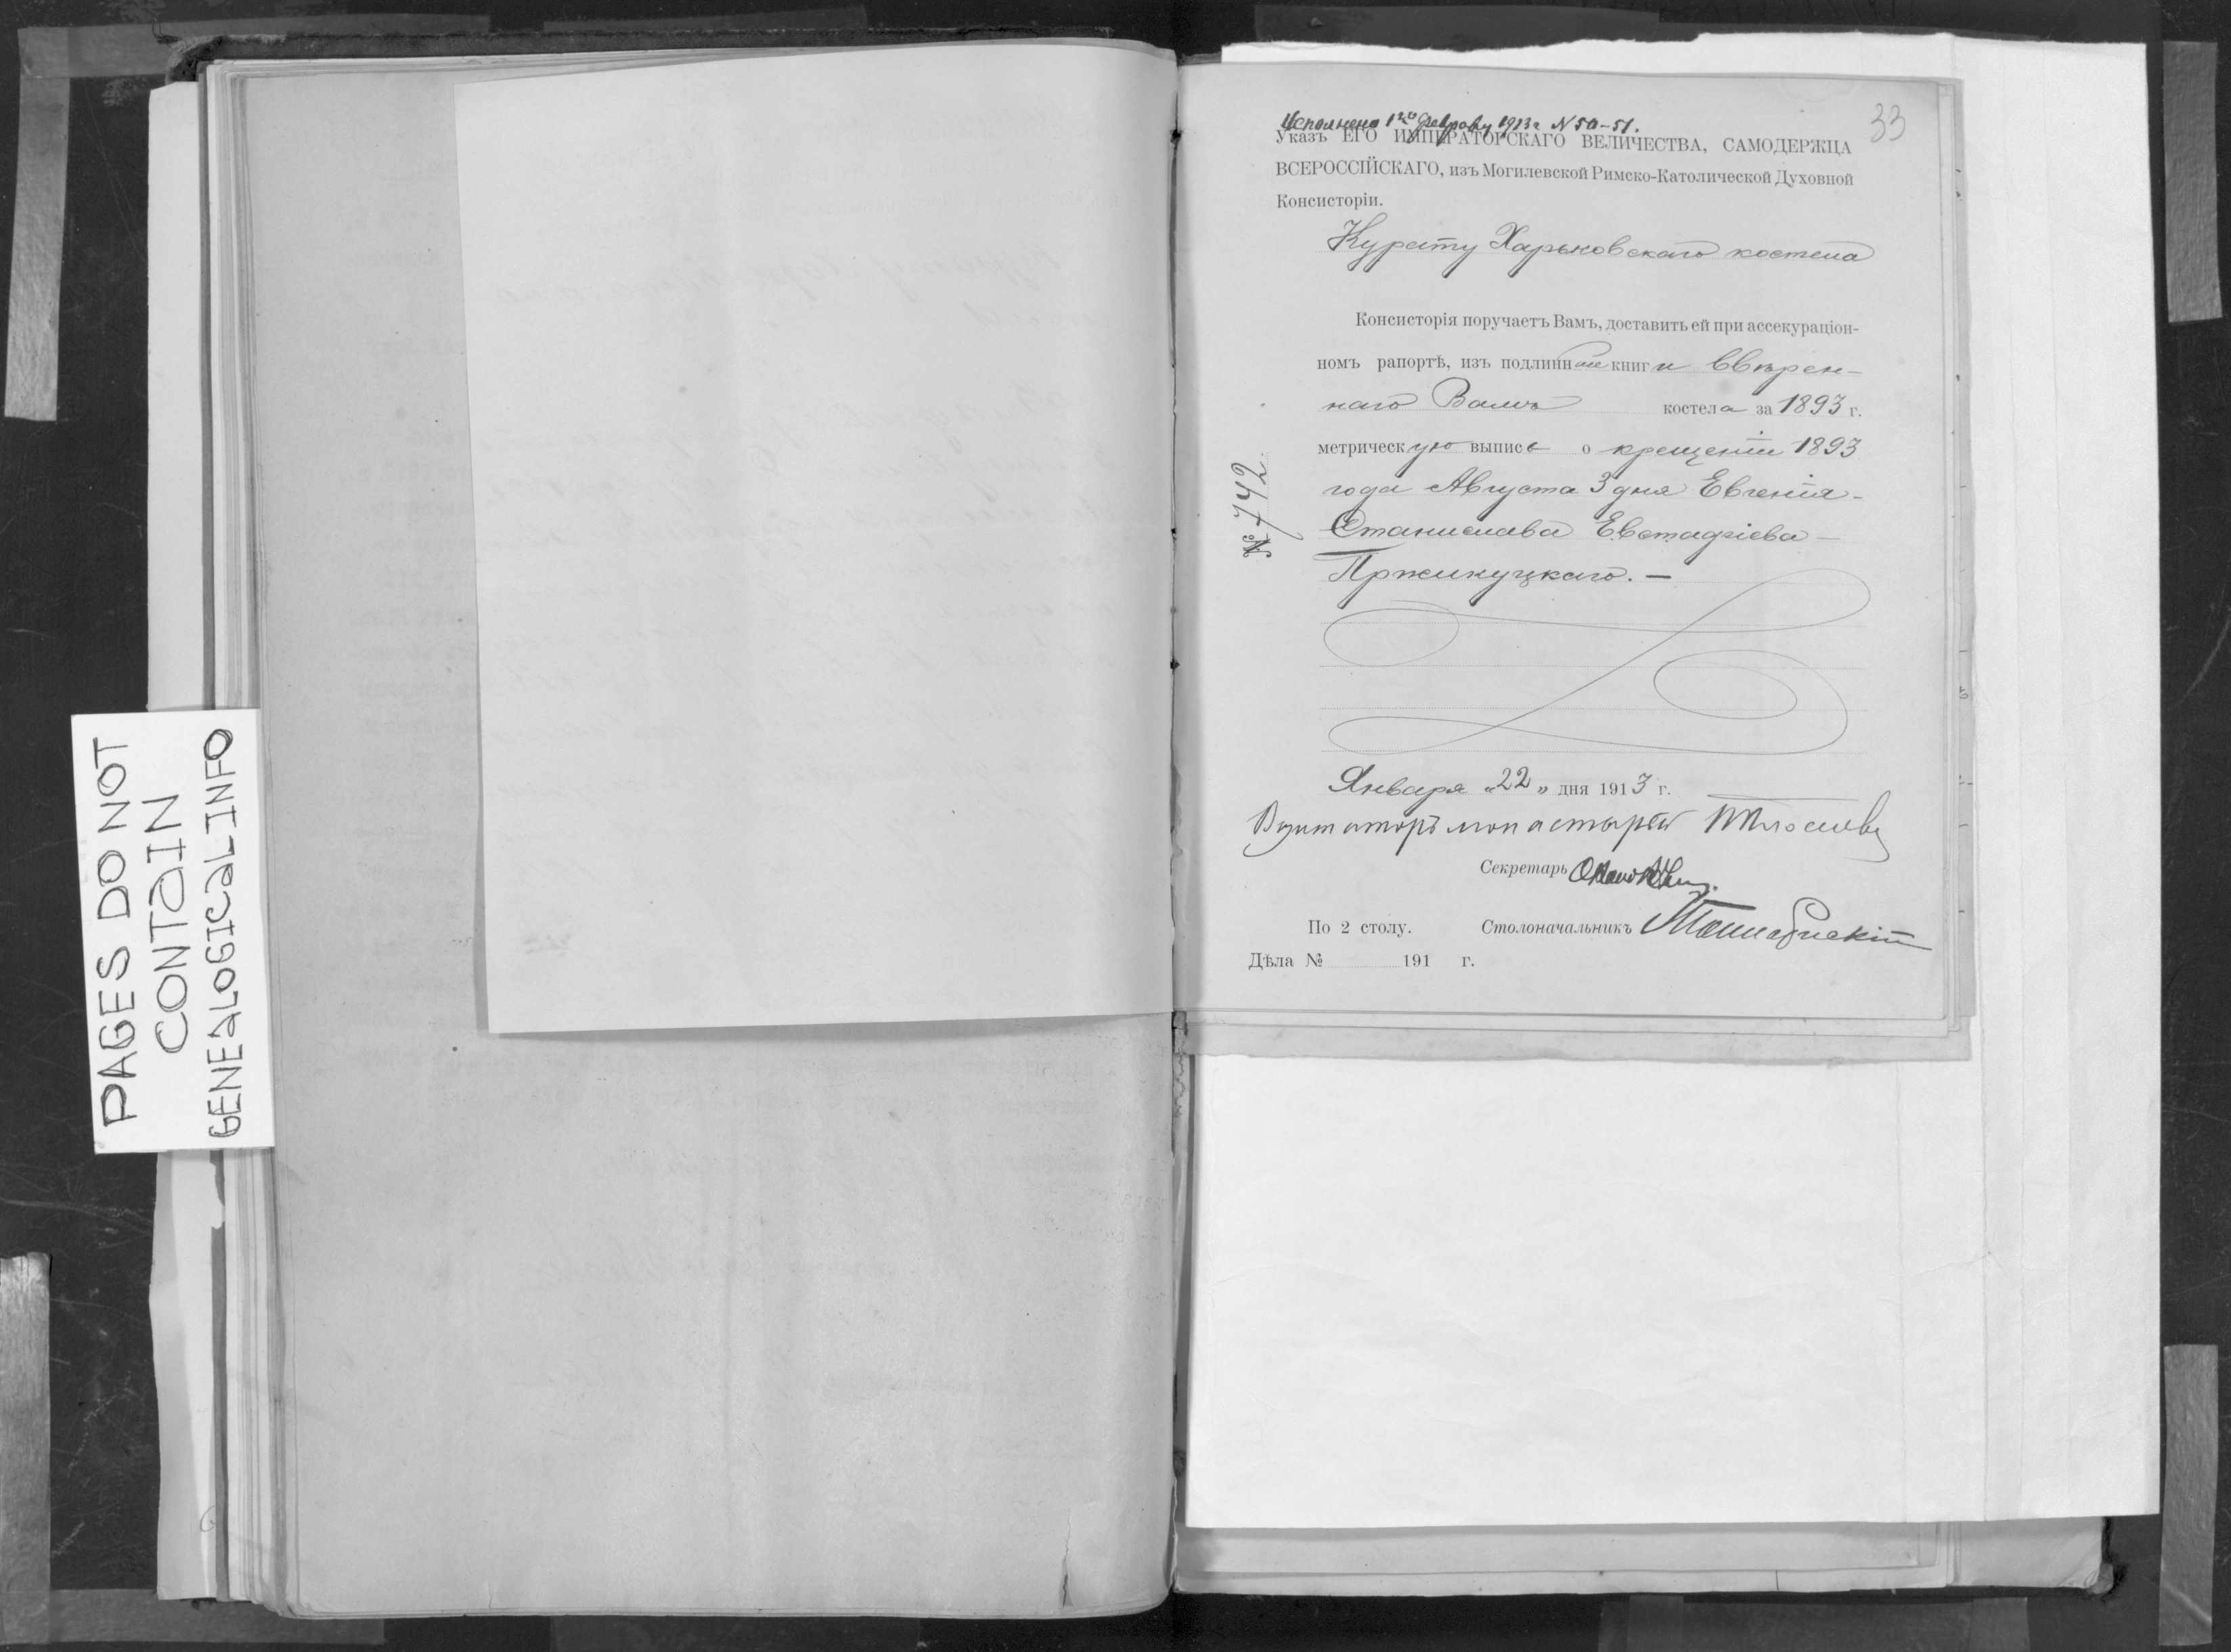 PAGES DO NOT
CONTAIN
GENEALOGICAL INFO
33
Исполнено 1го Февраля 1913 г. N 50-51.
Указъ ЕГО ИМПЕРАТОРСКАГО ВЕЛИЧЕСТВА, САМОДЕРЖЦА
ВСЕРОССІЙСКАГО, изъ Могилевской Римско-Католической Духовной
Консисторіи.
Курату Харьковскаго костела
Консисторія поручаетъ Вамъ, доставить ей при ассекураціон-
номъ рапортѣ, изъ подлинной книги ввѣрен-
наго Вамъ костела за 1893 г.
метрическую выпись о крещеніи 1893
года Августа 3 дня Евгенія-
Станислава Евстафіева-
Пржилуцкаго. —
№ 742.
Января „22„ дня 1913 г.
Визитаторъ монастырей
Секретарь
По 2 столу. Столоначальникъ
Дѣла № 191 г.